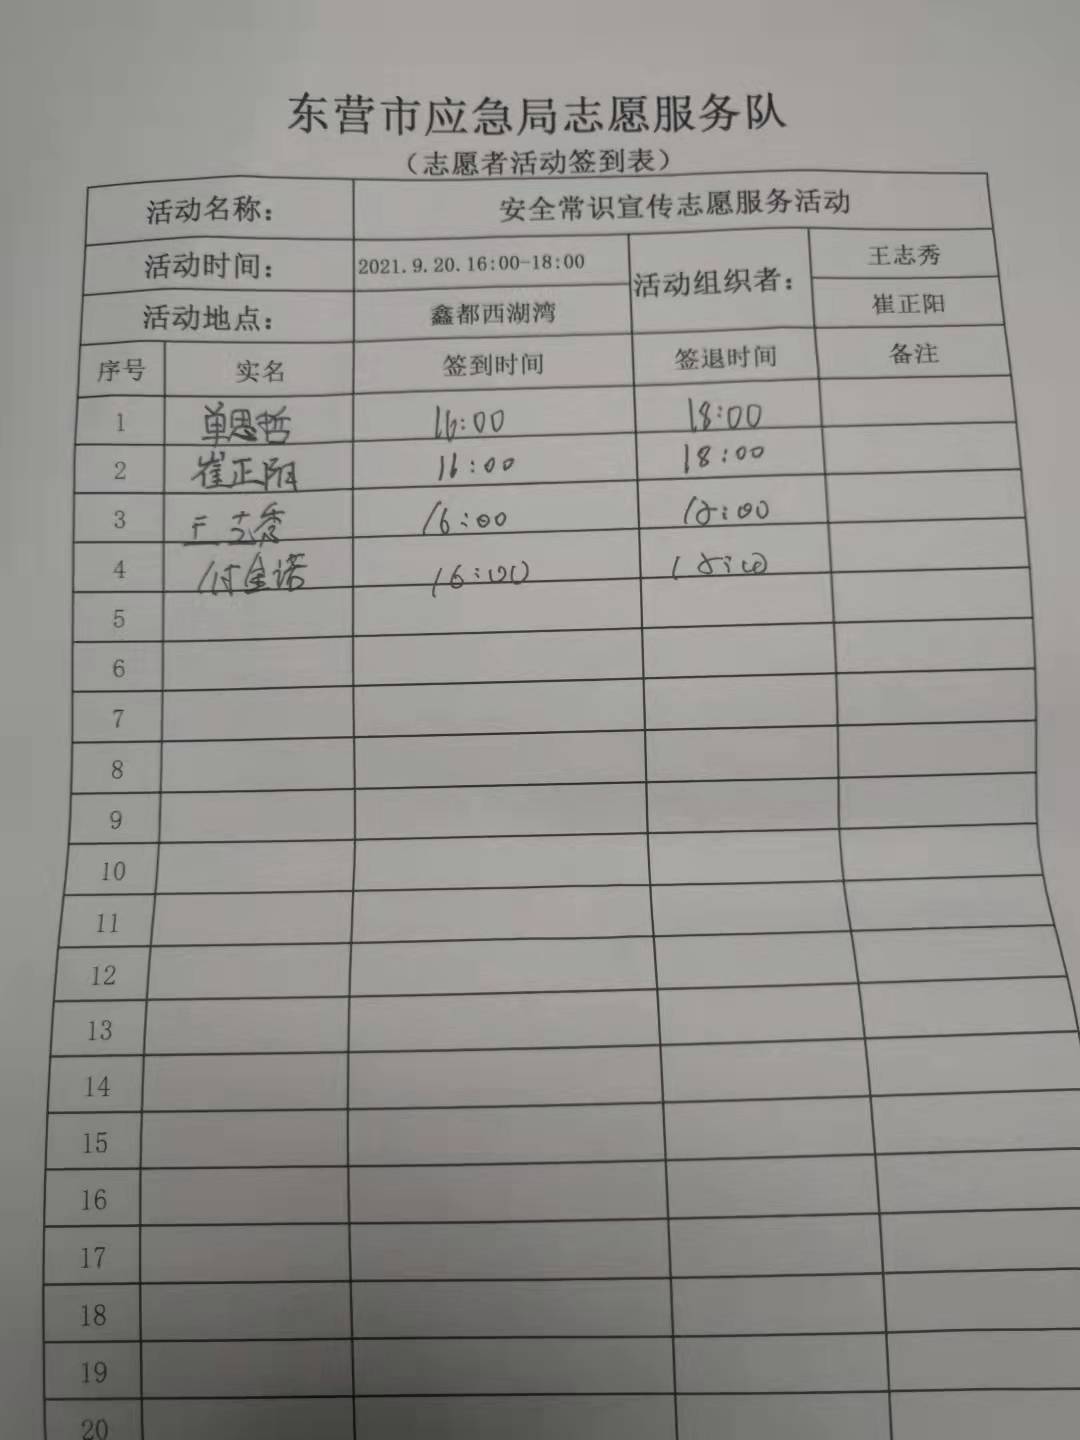 东营市应急局志愿服务队
（志愿者活动签到表）
活动名称： 安全常识宣传志愿服务活动
活动时间： 2021.9.20.16:00-18:00 活动组织者： 王志秀
活动地点： 鑫都西湖湾 崔正阳
序号 实名 签到时间 签退时间 备注
1 单思哲 16:00 18:00
2 崔正阳 16:00 18:00
3 王志秀 16:00 18:00
4 付金诺 16:00 18:00
5
6
7
8
9
10
11
12
13
14
15
16
17
18
19
20